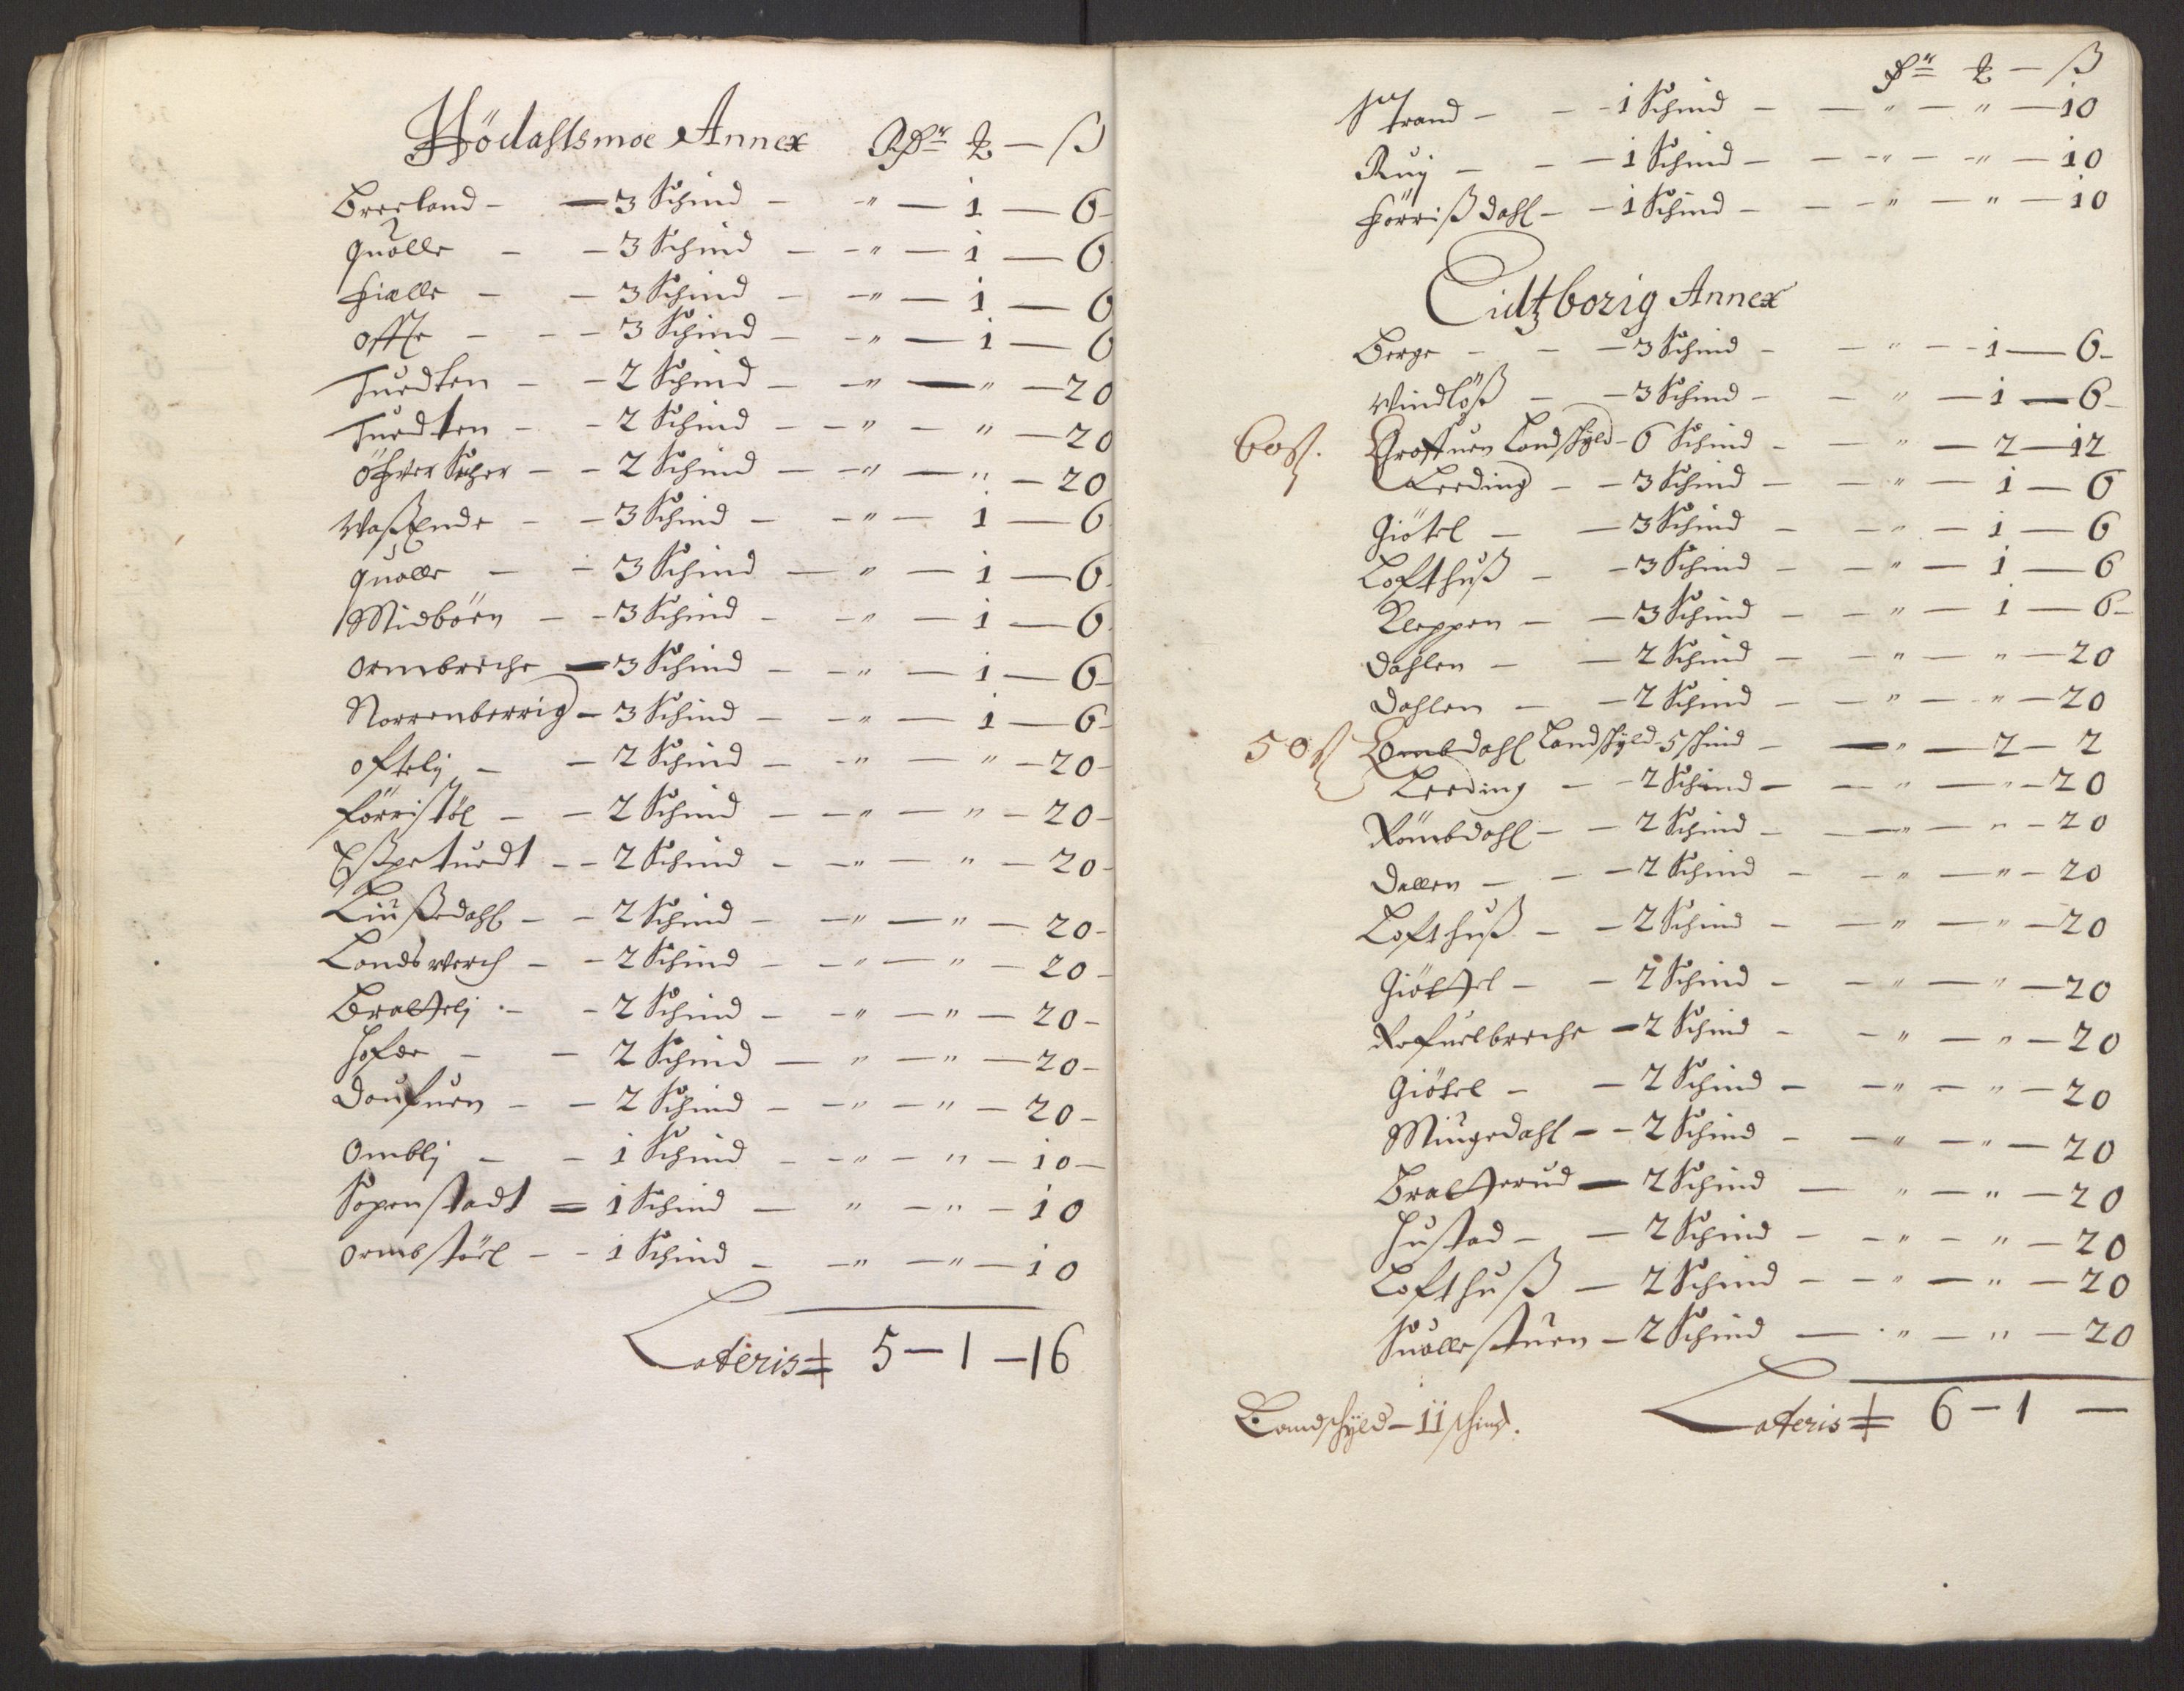 Hödahlsmoe Annex Rdr ꝶ — ß
Breeland — 3 Schind — " — 1 — 6
Quålle — 3 Schind — " — 1 — 6
Fiælle — 3 Schind — " — 1 — 6
Offte — 3 Schind — " — 1 — 6
Tuedten — 2 Schind — " — " — 20
Tuedten — 2 Schind — " — " — 20
— 2 Schind — " — " — 20
Waßende — 3 Schind — " — 1 — 6
Quålle — 3 Schind — " — 1 — 6
Midböen — 3 Schind — " — 1 — 6
Ormbreche — 3 Schind — " — 1 — 6
Norrenberrig — 3 Schind — " — 1 — 6
Oftelj — 2 Schind — " — " — 20
Förristöl — 2 Schind — " — " — 20
Eßpetuedt — 2 Schind — " — " — 20
Liußdahl — 2 Schind — " — " — 20
Landsverch — 2 Schind — " — " — 20
Brattelj — 2 Schind — " — " — 20
Hofde — 2 Schind — " — " — 20
Doufuen — 2 Schind — " — " — 20
Omblj — 1 Schind — " — " — 10
Sopenstadt — 1 Schind — " — " — 10
Ormbstöel — 1 Schind — " — " — 10
Lateris 5 — 1 — 16
dr ꝶ — ß
Strand — 1 Schind — " — " — 10
Ruj — 1 Schind — " — " — 10
Förrißdahl — 1 Schind — " — " — 10
Eidtzborig Annex
Berge — 3 Schind — " — 1 — 6
Windlöß — 3 Schind — " — 1 — 6
60ß. Grofuen Landschyld — 6 Schind — " — 2 — 12
Leeding — 3 Schind — " — 1 — 6
Giötel — 3 Schind — " — 1 — 6
Lofthuß — 3 Schind — " — 1 — 6
Kleppen — 3 Schind — " — 1 — 6
Dahlen — 2 Schind — " — " — 20
Dahlen — 2 Schind — " — " — 20
50ß Ombdahl Landschyld — 5 schind — " — 2 — 2
Leeding — 2 Schind — " — " — 20
Römbdahl — 2 Schind — " — " — 20
Dallen — 2 Schind — " — " — 20
Lofthuß — 2 Schind — " — " — 20
Giöttel — 2 Schind — " — " — 20
Rofuelbreche — 2 Schind — " — " — 20
Giötel — 2 Schind — " — " — 20
Miugedahl — 2 Schind — " — " — 20
Bratterud — 2 Schind — " — " — 20
Hustad — 2 Schind — " — " — 20
Lofthuß — 2 Schind — " — " — 20
Suallestuen — 2 Schind — " — " — 20
Landschyld — 11 schind. Lateris 6 — 1 —